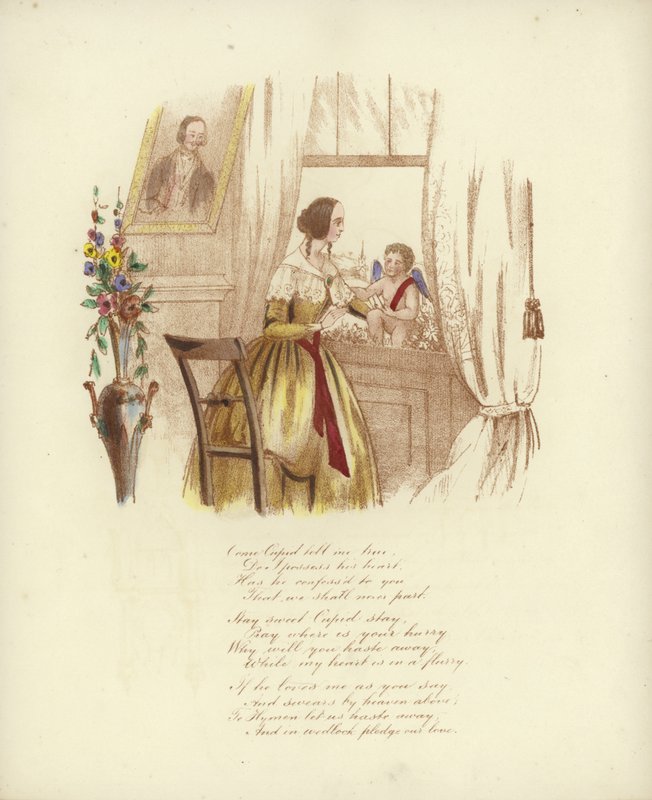 Come Cupid tell me true,
Do I possess his heart.
Has he confess'd to you
That we shall never part.
Stay sweet Cupid stay,
Pray where is your hurry
Why will you haste away,
While my heart is in a flurry.
If he loves me as you say
And swears by heaven above;
To Hymen let us haste away,
And in wedlock pledge our love.